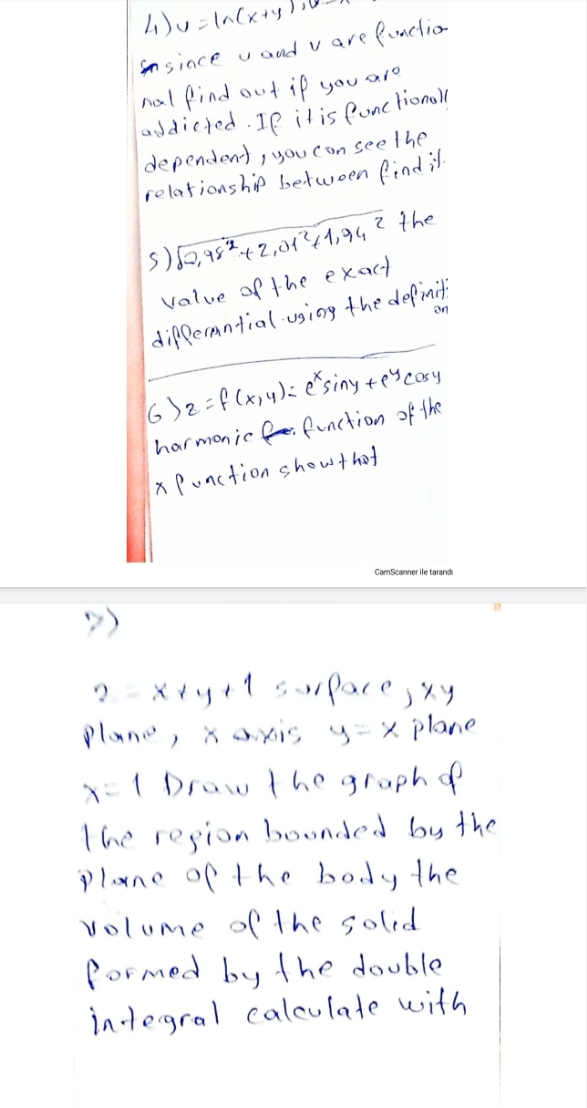 4) u = ln(x+y)
since u and v are functio
nal find out if you are
addicted. If it is functionall
dependent, you can see the
relationship between find it.
5) √2,98² + 2,01² + 1,94² the
value of the exact
differantial using the definiti
on
6) z = f(x,y) = e^x siny + e^y cosy
harmonic function of the
x function show that
CamScanner ile tarandı
7)
z = x+y+1 surface, xy
plane, x axis y = x plane
x = 1 Draw the graph of
the region bounded by the
plane of the body the
volume of the solid
formed by the double
integral calculate with